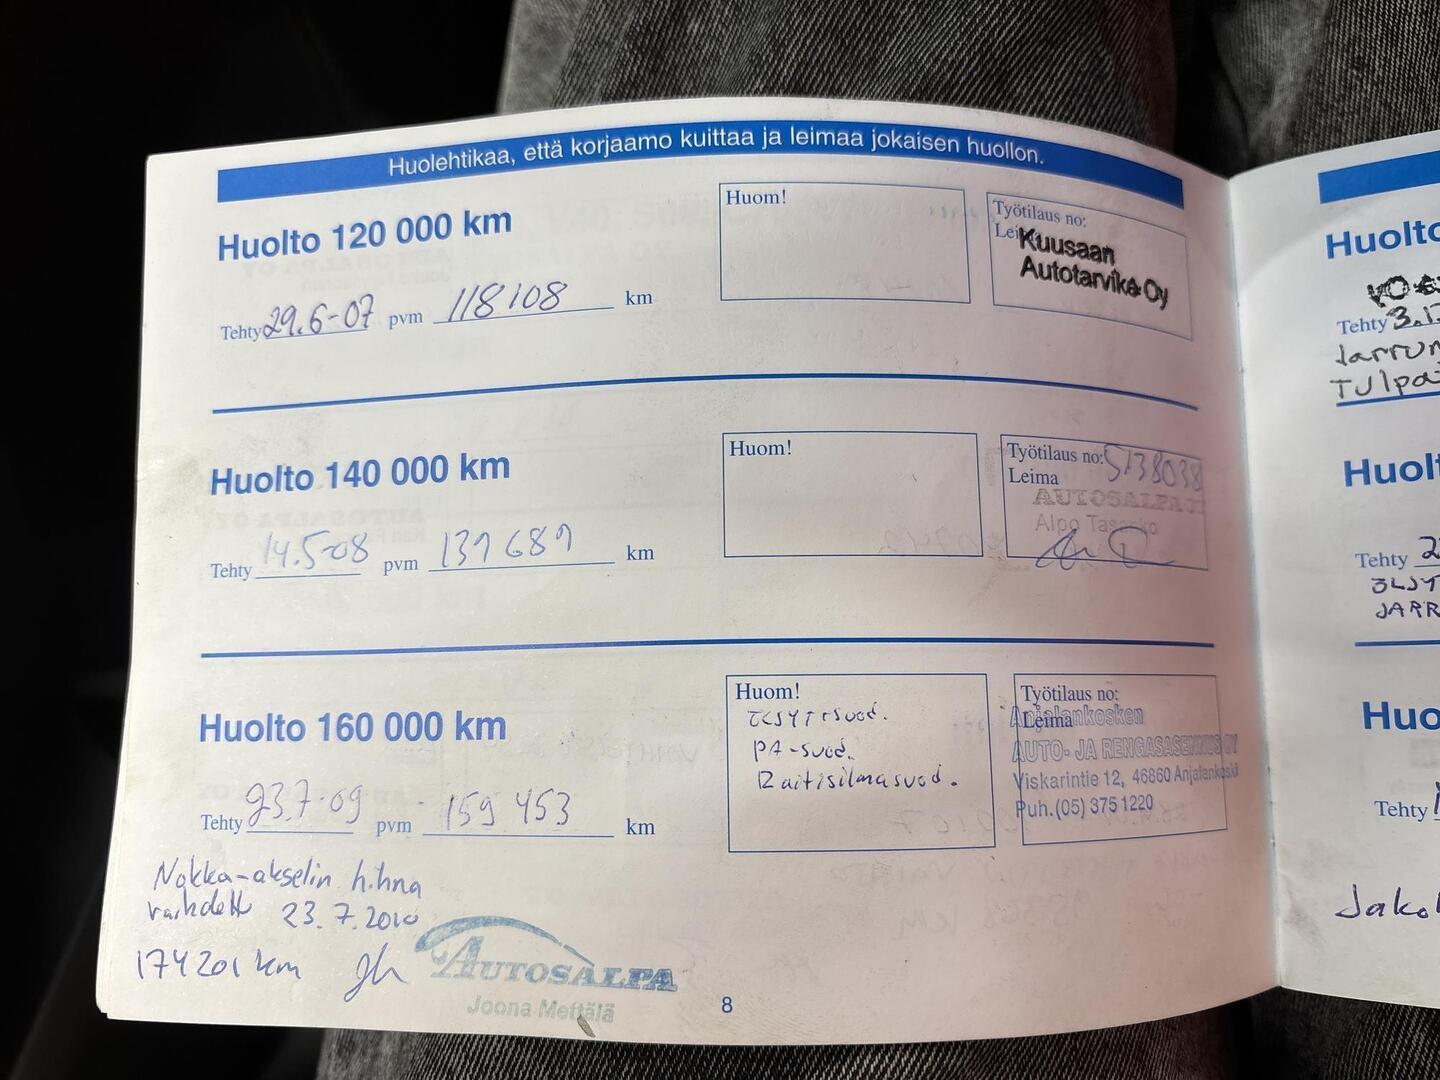 Huolehtikaa, että korjaamo kuittaa ja leimaa jokaisen huollon.
Huolto 120 000 km
Tehty 29.6-07 pvm 118108 km
Huom!
Työtilaus no:
Leima
Kuusaan
Autotarvike Oy
Huolto 140 000 km
Tehty 14.5-08 pvm 139689 km
Huom!
Työtilaus no: 5138038
Leima
AUTOSALPA OY
Alpo Tasanko
Huolto 160 000 km
Tehty 23.7.09 pvm 159 453 km
Huom!
PA-suod.
Raitisilmasuod.
Työtilaus no:
Leima
Anjalankosken
AUTO- JA RENGASASENNUS OY
Viskarintie 12, 46860 Anjalankoski
Puh. (05) 375 1220
Nokka-akselin hihna
vaihdettu 23.7.2010
174201 km
AUTOSALPA
Joona Mettälä
8
Huolto
Tehty 3.
Tehty 2
JARR
Tehty